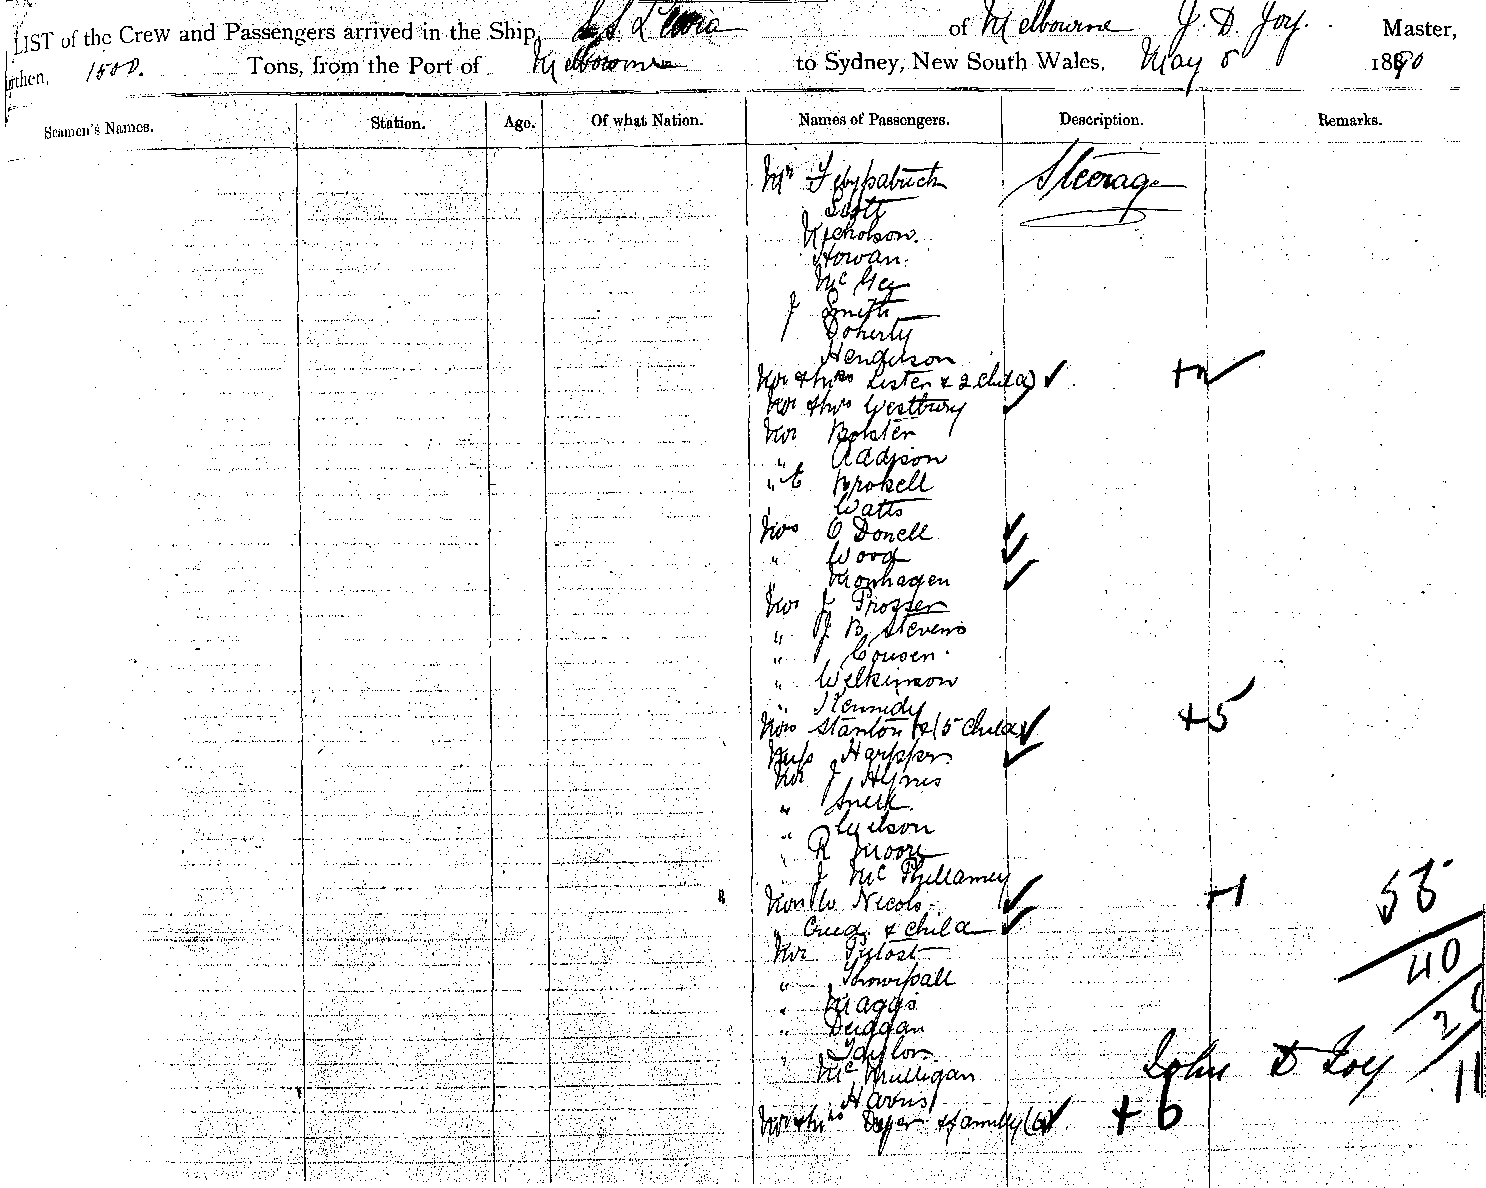 LIST of the Crew and Passengers arrived in the Ship, S.S. of Melbourne J. D. Joy. Master,
Burthen, 1500. Tons, from the Port of Melbourne to Sydney, New South Wales, May 8 1890
Seamen's Names. Station. Age. Of what Nation. Names of Passengers. Description. Remarks.
Mr Steerage
Scott
Nicholson.
Howan.
McGee
J Smith
Doherty
Henderson
Mr & Mrs Lister & 2 child ✓ +2 ✓
Mr & Mrs Westbury ✓
Mr Bolster
" Addison
" C Brokell
Watts
Mrs O Donell ✓
" Wood ✓
" Kronhagen ✓
Mr J Prosser
" J B Stevens
" Cousen
" Wilkinson
" Kennedy
Mrs Stanton & (5 child) ✓ +5
Miss Harpper ✓
Mr J Hynes
"
" Wilson
" R Moore
J McPhillamey
Mrs W Nicols ✓ +1
" & child ✓
Mr
"
" Maggs
" Duggan
" Taylor
McMulligan
Harris
Mr & Mrs & family (6) ✓ +6
58
40
11
John D Joy